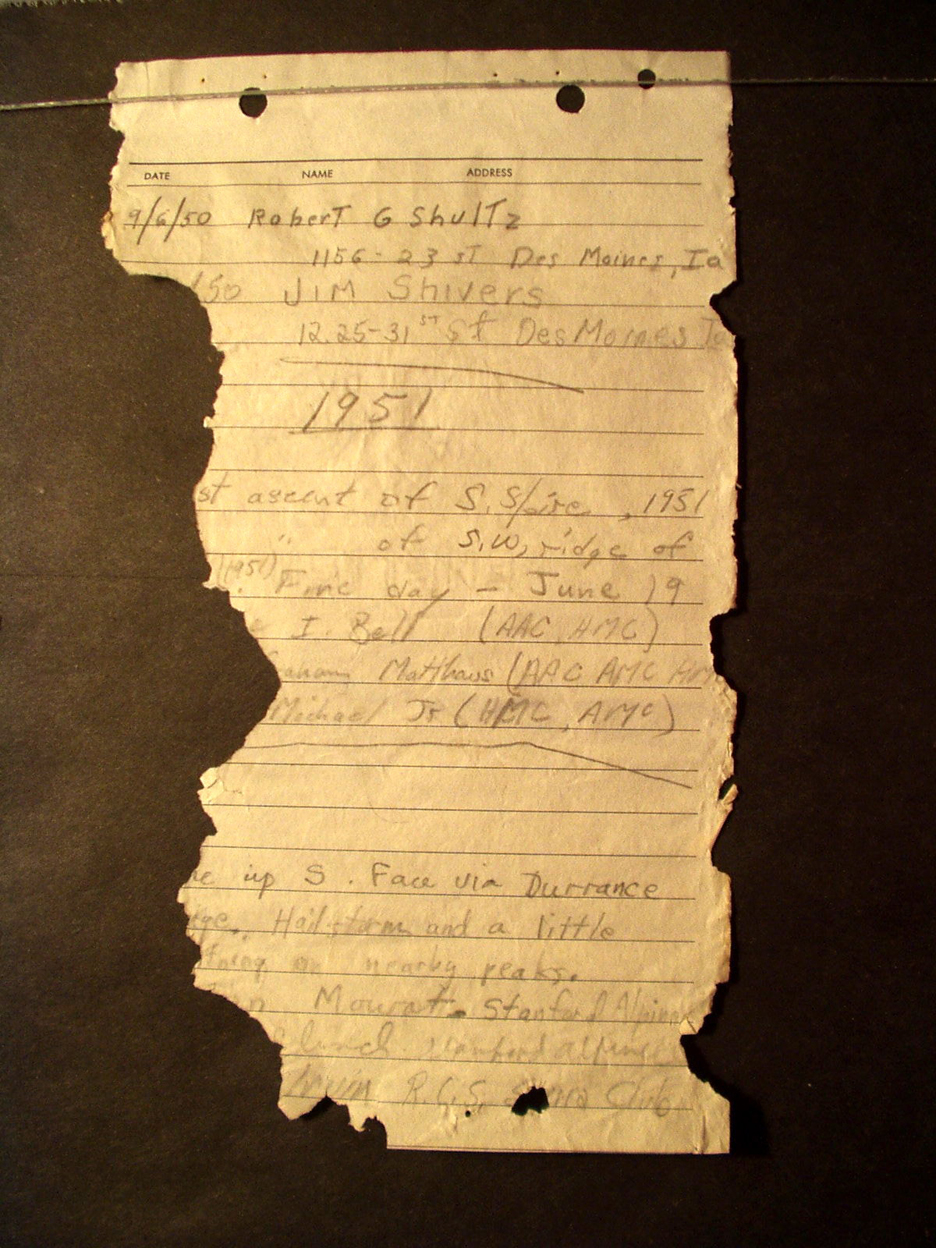 DATE NAME ADDRESS
9/6/50 Robert G Shultz
1156 - 23 st Des Moines, Ia
/50 JIM Shivers
1225-31 ST St Des Moines Ia
1951
st ascent of S. Spire, 1951
" of S.W. ridge of
(1951). Fine day - June 19
e I. Bell (AAC, HMC)
raham Matthews (AAC AMC HMC
Michael Jr (HMC, AMC)
up S. Face via Durrance
ge. Hailstorm and a little
tning on nearby peaks.
Stanford Alpine
stanford alpine
Irvin R.C.S. Sierra Club